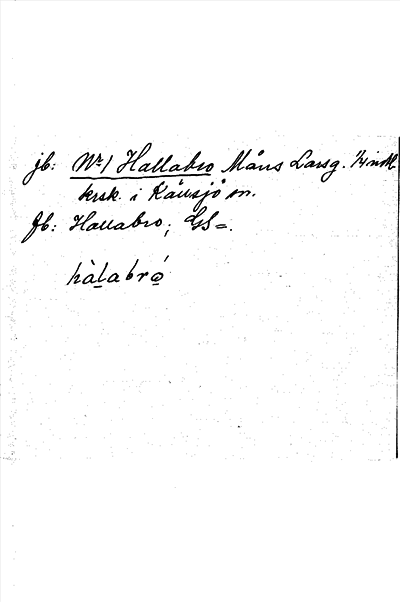 jb: Nr 1 Hallabro Måns Larsg. 1/4 indl.
krsk. i Kållsjö sn.
Jb: Hallabro; GS=.
hàlabró